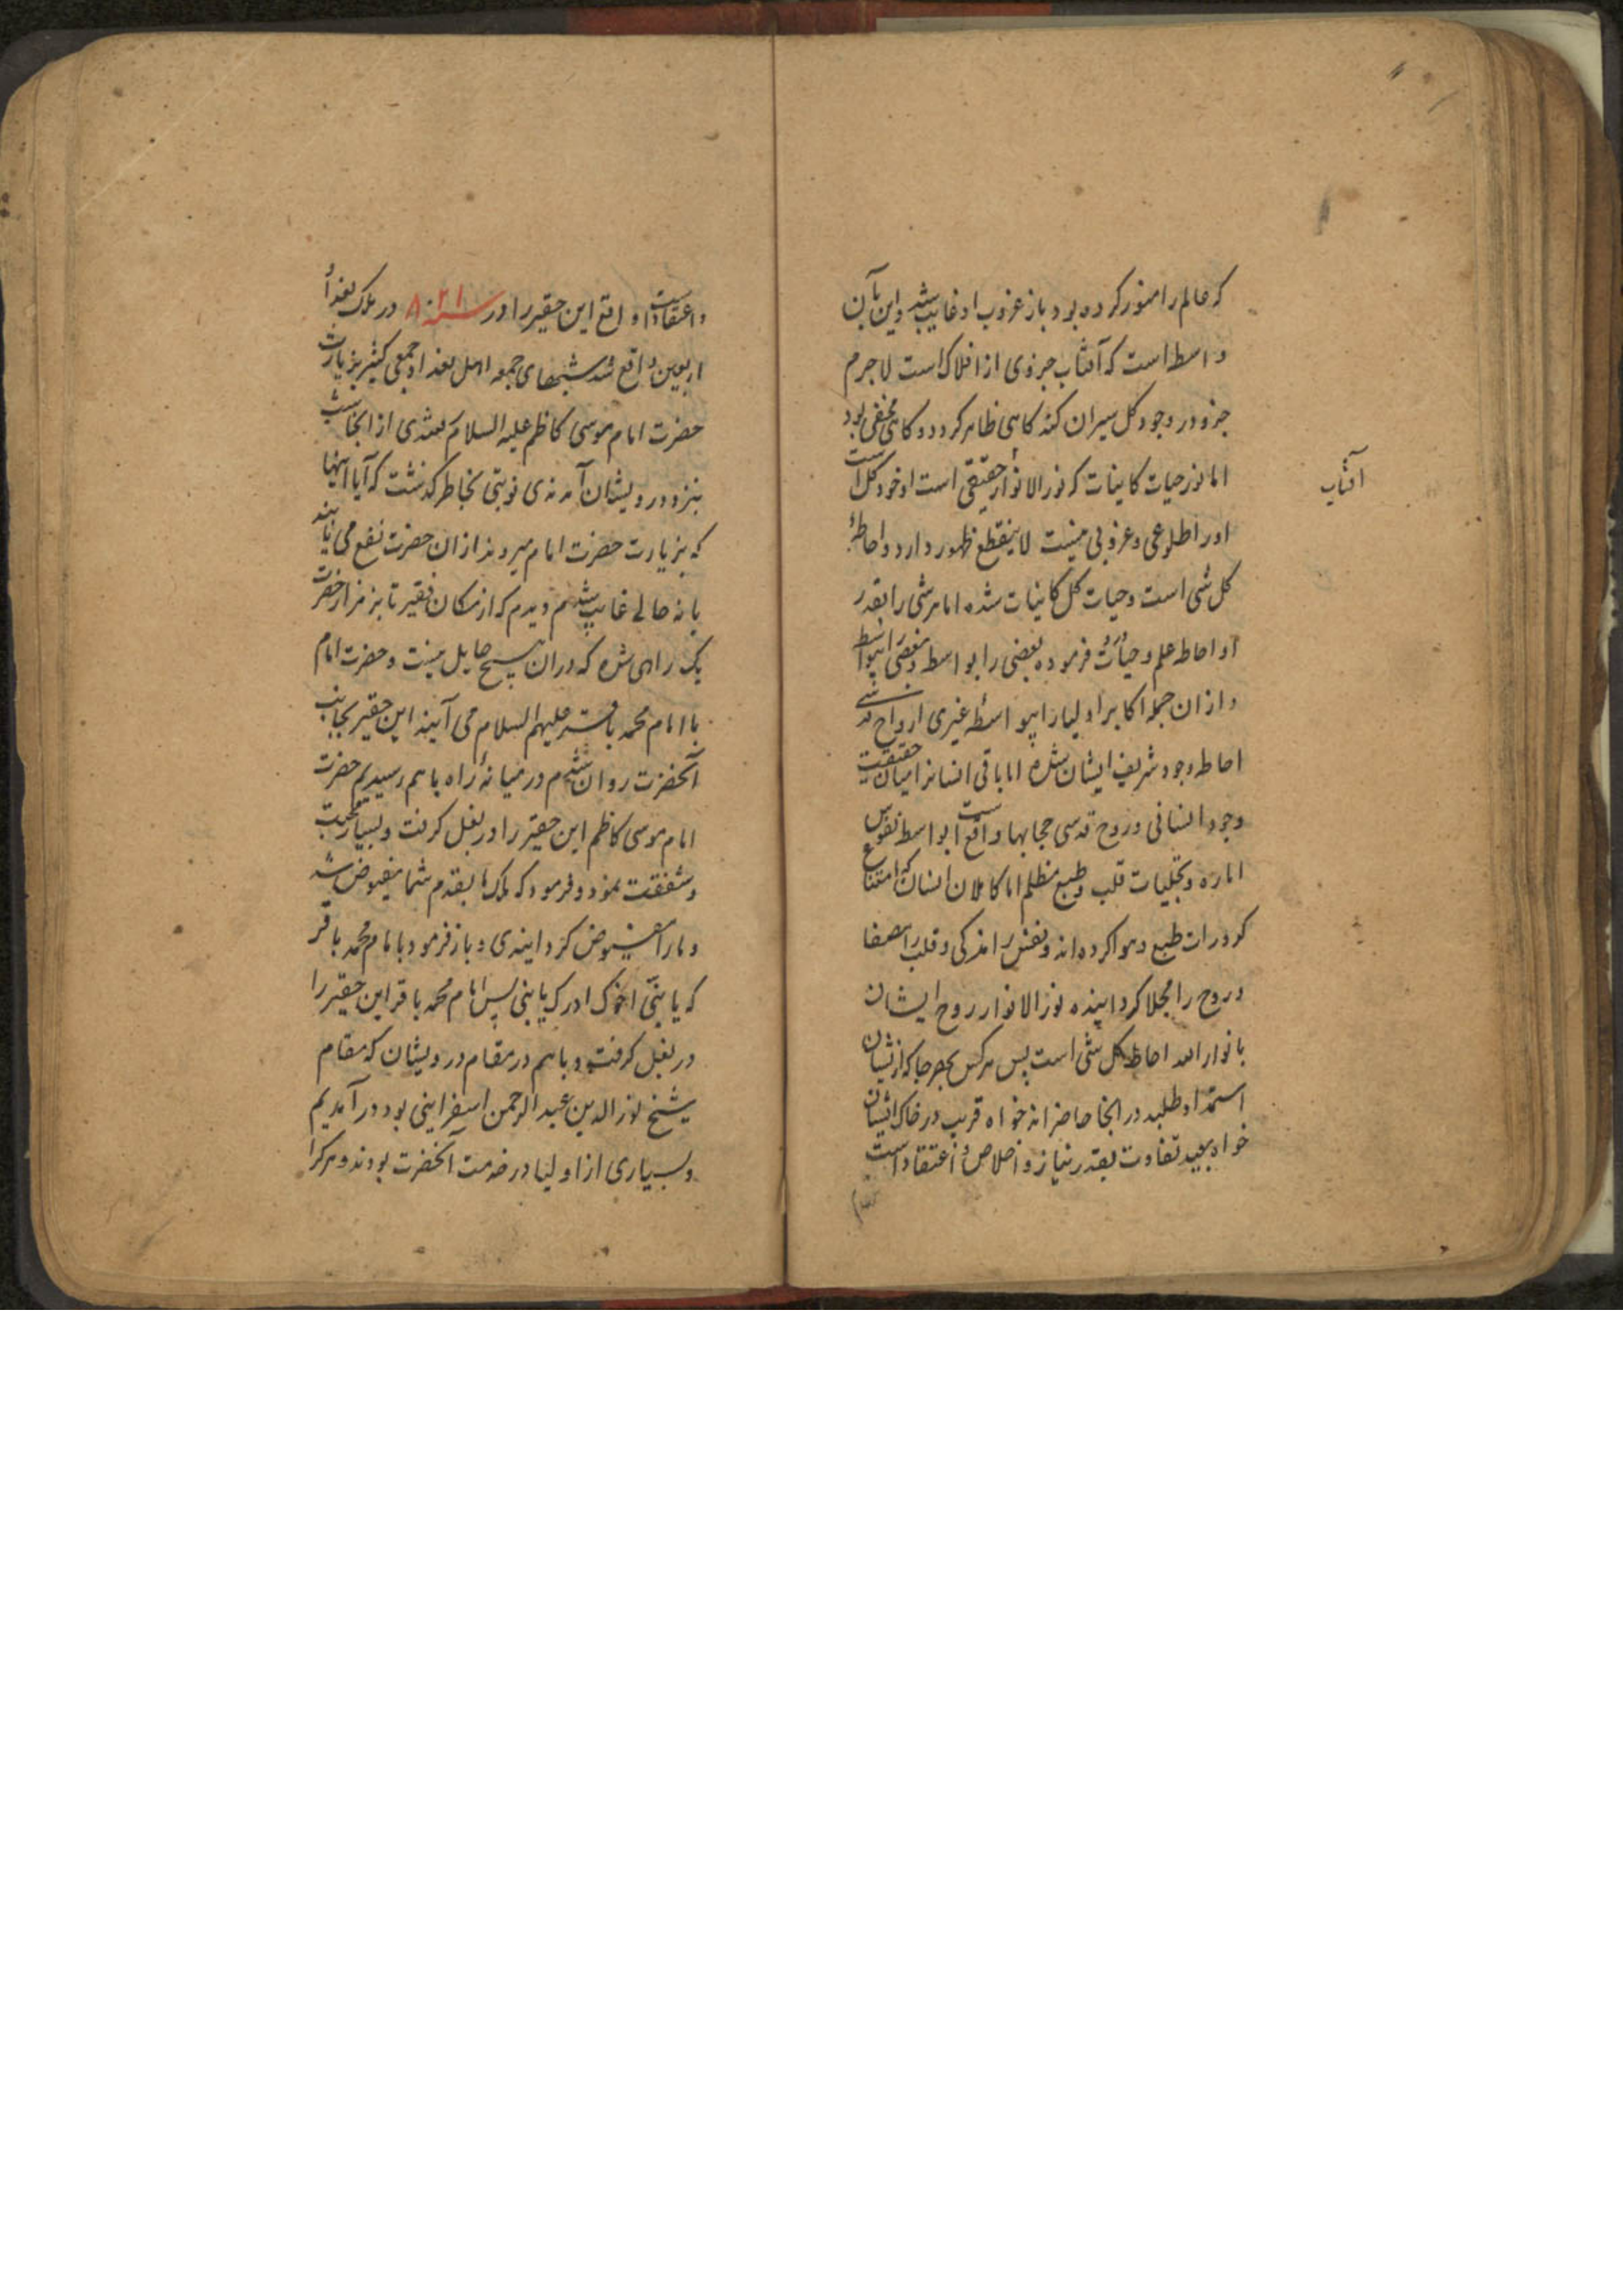 که عالم را منور کرده بود باز غروب او غایب شد و این بآن
واسطه است که آفتاب جزوی از افلاک است لاجرم
جزو در وجود کل سیران کند کاهی ظاهر کردد و کاهی مخفی بود
اما نور حیات کاینات که نور الانوار حقیقی است او خود کل است
او را طلوعی و غروبی نیست لاینقطع ظهور دارد و احاطهٔ
کل شی است و حیات کل کاینات شده اما هر شی را بقدر
او احاطه علم و حیات فرموده بعضی را بواسطه و بعضی را بیواسطه
و از ان جمله اکابر اولیا را بیواسطهٔ غیری ارواح قدسی
احاطه وجود شریف ایشان شده اما باقی انسانرا میان حقیقت
وجود انسانی و روح قدسی حجابها واقع است بواسطه نفوس
اماره و تجلیات قلب و طبع مظلم اما کاملان انسان که امتناع
کدورات طبع و هوا کرده اند و نفس را مزکی و قلب را مصفا
و روح را مجلا کردانیده نور الانوار روح ایشان
بانوار الله احاطه کل شی است پس هر کس بهر جا که از ایشان
استمداد طلبد در انجا حاضر اند خواه قریب در خاک ایشان
خواه بعید تفاوت بقدر نیاز و اخلاص و اعتقاد است
آفتاب
و اعتقاد است و اقع این حقیر را در سنه ۸۲۱ در ملک بغداد
اربعین واقع شد شبهای جمعه اهل بغداد جمعی کثیر بزیارت
حضرت امام موسی کاظم علیه السلام شدندی از انجا
بنزد درویشان آمدندی نوبتی بخاطر کذشت که آیا اینها
که بزیارت حضرت امام میروند از ان حضرت نفع می یابند
یا نه حالی غایب شدم دیدم که از مکان فقیر تا بر مزار حضرت
یک راهی شده که در ان هیچ حایل نیست و حضرت امام
با امام محمد باقر علیهم السلام می آیند این حقیر بجانب
آنحضرت روان شدم در میانهٔ راه باهم رسیدیم حضرت
امام موسی کاظم این حقیر را در بغل کرفت و بسیار محبت
و شفقت نمود و فرمود که ملک ما بقدم شما مفیوض شد
و ما را مفیوض کردانیدی و باز فرمود با امام محمد باقر
که یا بنی اخوک ادرک یا بنی پس امام محمد باقر این حقیر را
در بغل کرفت و باهم در مقام درویشان که مقام
شیخ نور الدین عبد الرحمن اسفراینی بود در آمدیم
و بسیاری از اولیا در خدمت آنحضرت بودند و هر کرا